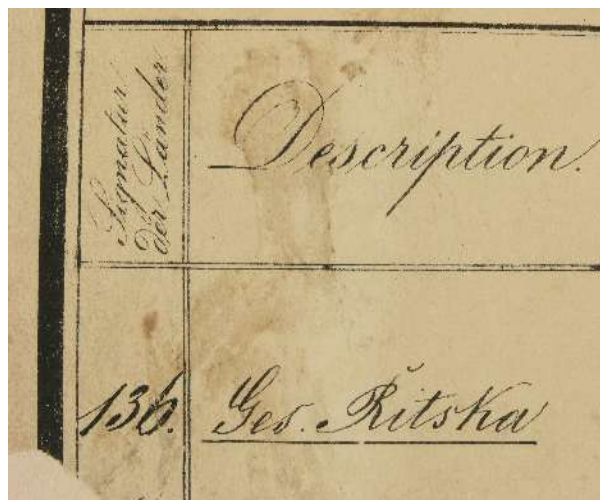 Signatur
der Länder
Description.
136. Ges. Řitska